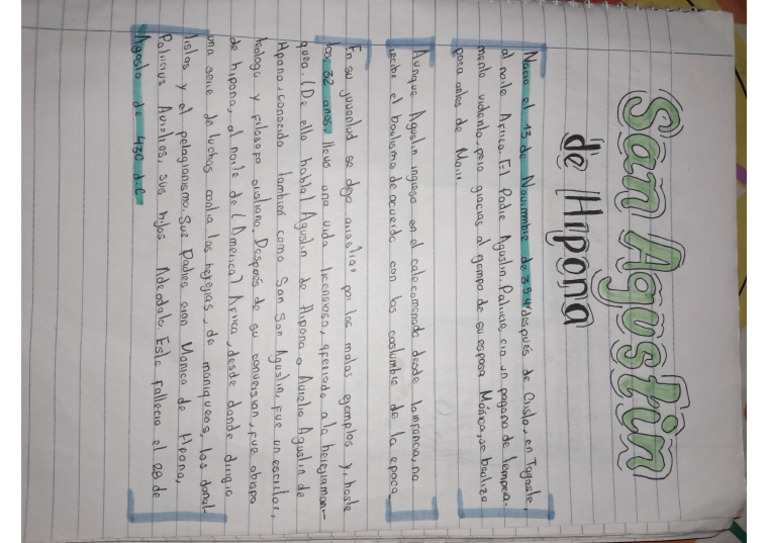 San Agustin
de Hipona
Nacio el 13 de Noviembre de 354 después de Cristo, en Tagaste,
al norte Africa. El Padre Agustin, Patricio, era un pagano de tempera-
mento violento, pero gracias al ejempo de su esposa Mónica, se bautizo
poco antes de Morir
Aunque Agustin ingreso en el catecomenado desde la infancia, no
recibio el bautismo de acuerdo con las costumbre de la epoca
En su juventud se dejo arrastrar por los malos ejemplos y, hasta
los 32 años, llevo una vida licenciosa, aferrado a la herejia mani-
quea. (De ello habla) Agustin de Hipona o Aurelio Agustin de
Hipona, conocido también como San San Agustin, fue un escritor,
teologo y filosofo cristiano. Después de su conversion, fue obispo
de hipona, al norte de (America) Africa, desde donde dirigio
una serie de luchas contra las herejias, de maniqueos, los donat-
istas y el pelagianismo. Sus Padres eron Monica de Hipona,
Patricius Aurelios, sus hijos Adeodato. Este fallecio el 28 de
Agosto de 430 d.C